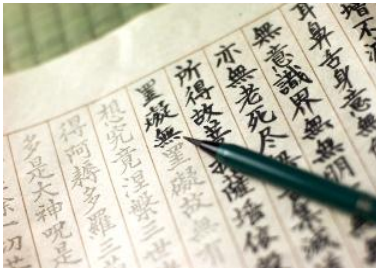 増不減
耳鼻舌身意無
無意識界無無明
亦無老死尽無苦集滅
所得故菩提薩埵依
罣礙無罣礙故無有
想究竟涅槃三世
得阿耨多羅三
多是大神呪是
除一切